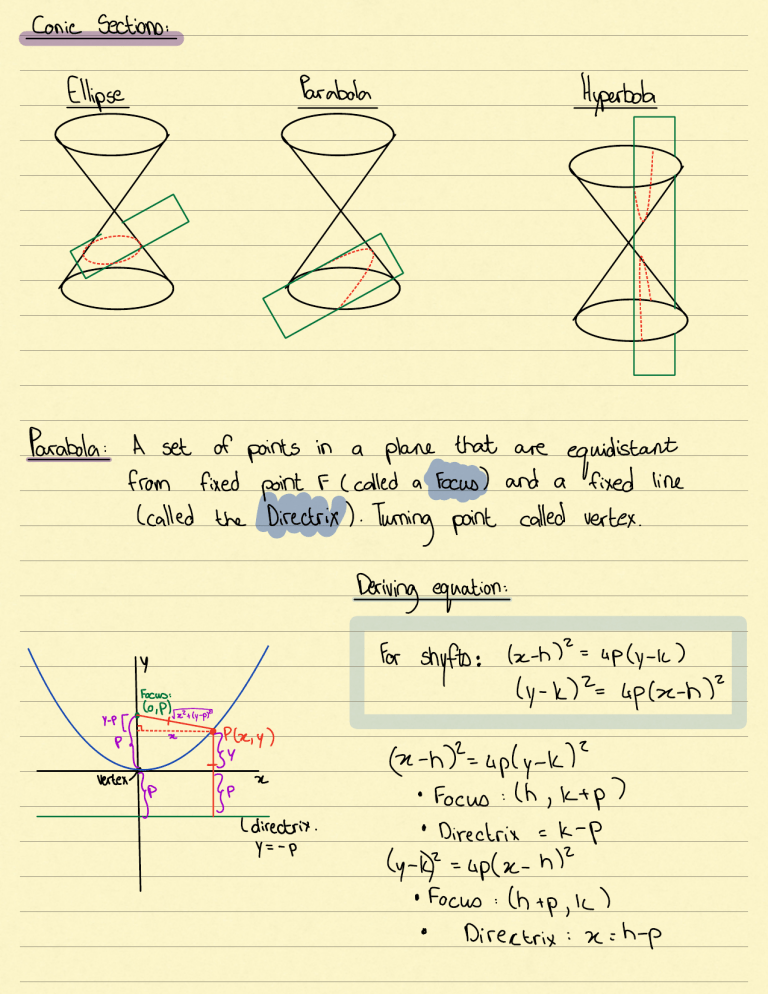 Conic Sections:
Ellipse
Parabola
Hyperbola
Parabola: A set of points in a plane that are equidistant
from fixed point F (called a Focus) and a fixed line
(called the Directrix). Turning point called vertex.
Deriving equation:
For shyfts: (x-h)² = 4p(y-k)
(y-k)² = 4p(x-h)²
y
Focus:
(0,p)
√x²+(y-p)²
y-p
P
x
P(x,y)
y
vertex
x
P
P
directrix.
y=-p
(x-h)² = 4p(y-k)²
• Focus: (h, k+p)
• Directrix = k-p
(y-k)² = 4p(x-h)²
• Focus: (h+p, k)
• Directrix: x = h-p